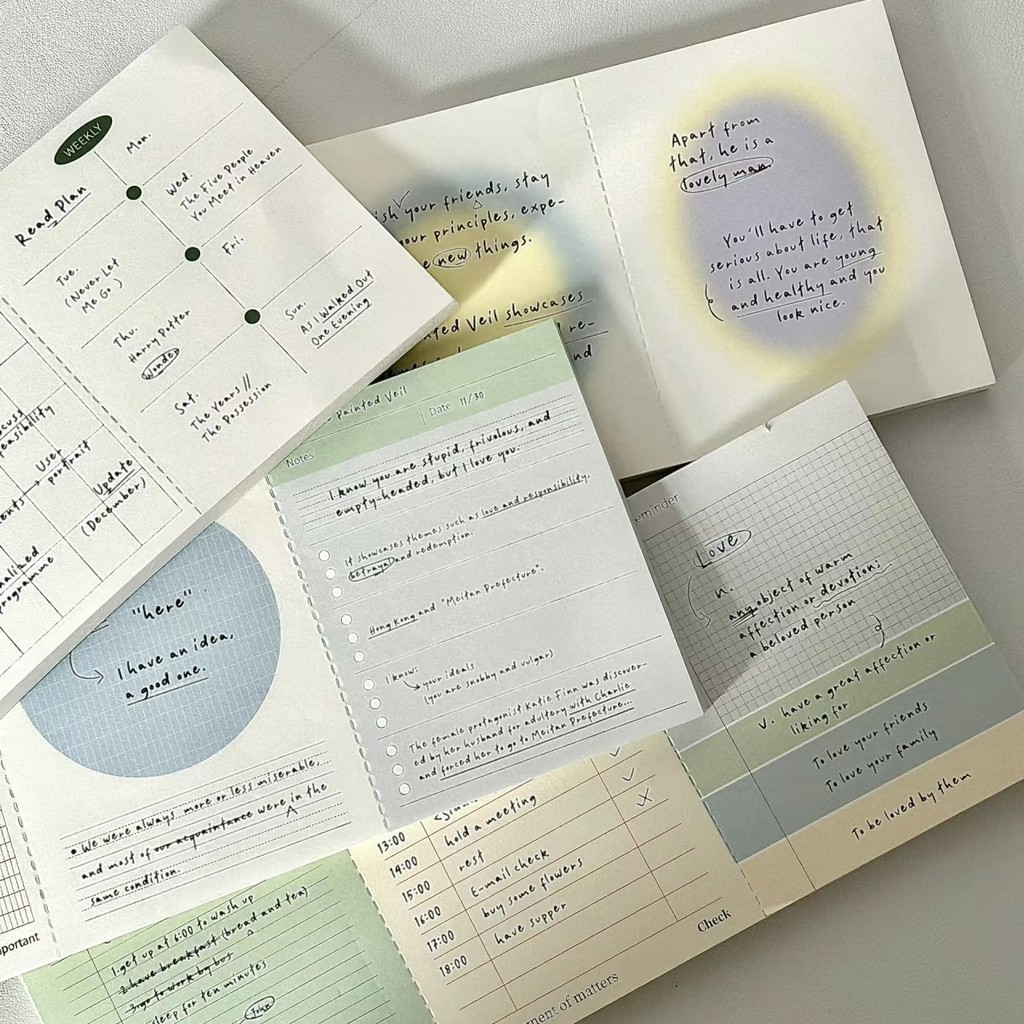 WEEKLY
Read Plan
Mon.
Tue.
(Never Let
Me Go)
Wed.
The Five People
You Meet in Heaven
Thu.
Harry Potter
Wonder
Fri.
Sat.
The Years //
The Possession
Sun.
As I Walked Out
One Evening
User
portrait
Update
(December)
programme
your friends, stay
your principles, expe-
new things.
Veil showcases
Apart from
that, he is a
lovely man
You'll have to get
serious about life, that
is all. You are young
and healthy and you
look nice.
Painted Veil
Date 11/30
Notes
I know you are stupid, frivolous, and
empty-headed, but I love you.
It showcases themes such as love and responsibility,
betrayal and redemption.
Hong Kong and "Meitan Prefecture".
I know:
your ideals
(you are snobby and vulgar)
The female protagonist Katie Finn was discover-
ed by her husband for adultery with Charlie
and forced her to go to Meitan Prefecture...
Love
n.
any object of warm
affection or devotion;
a beloved person
v. have a great affection or
liking for
To love your friends
To love your family
To be loved by them
"here"
I have an idea,
a good one.
• We were always more or less miserable,
and most of our acquaintance were in the
same condition.
1.get up at 6:00 to wash up
2.have breakfast (bread and tea)
3.go to work by bus
for ten minutes
John
13:00 hold a meeting
14:00 rest
15:00 E-mail check
16:00 buy some flowers
17:00 have supper
18:00
Check
of matters